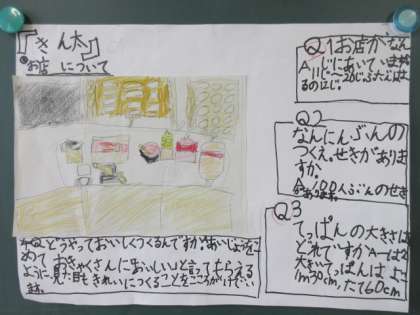 『きん太』
お店について
Q1お店がなん
じにあいていますか
A11じに
Q2
なんにんぶんの
つくえ。せきがありま
すか。
A100人ぶんのせき
があります。
Q3
てっぱんの大きさは
どれですかAーばん
大きいてっぱんは、よこ
1m30cm、たて60cm
4QどうやっておいしくつくるんですかAあいじょうをこ
めて、おきゃくさんに「おいしい」と言ってもらえる
ように、見た目もきれいにつくることをこころがけてい
ます。